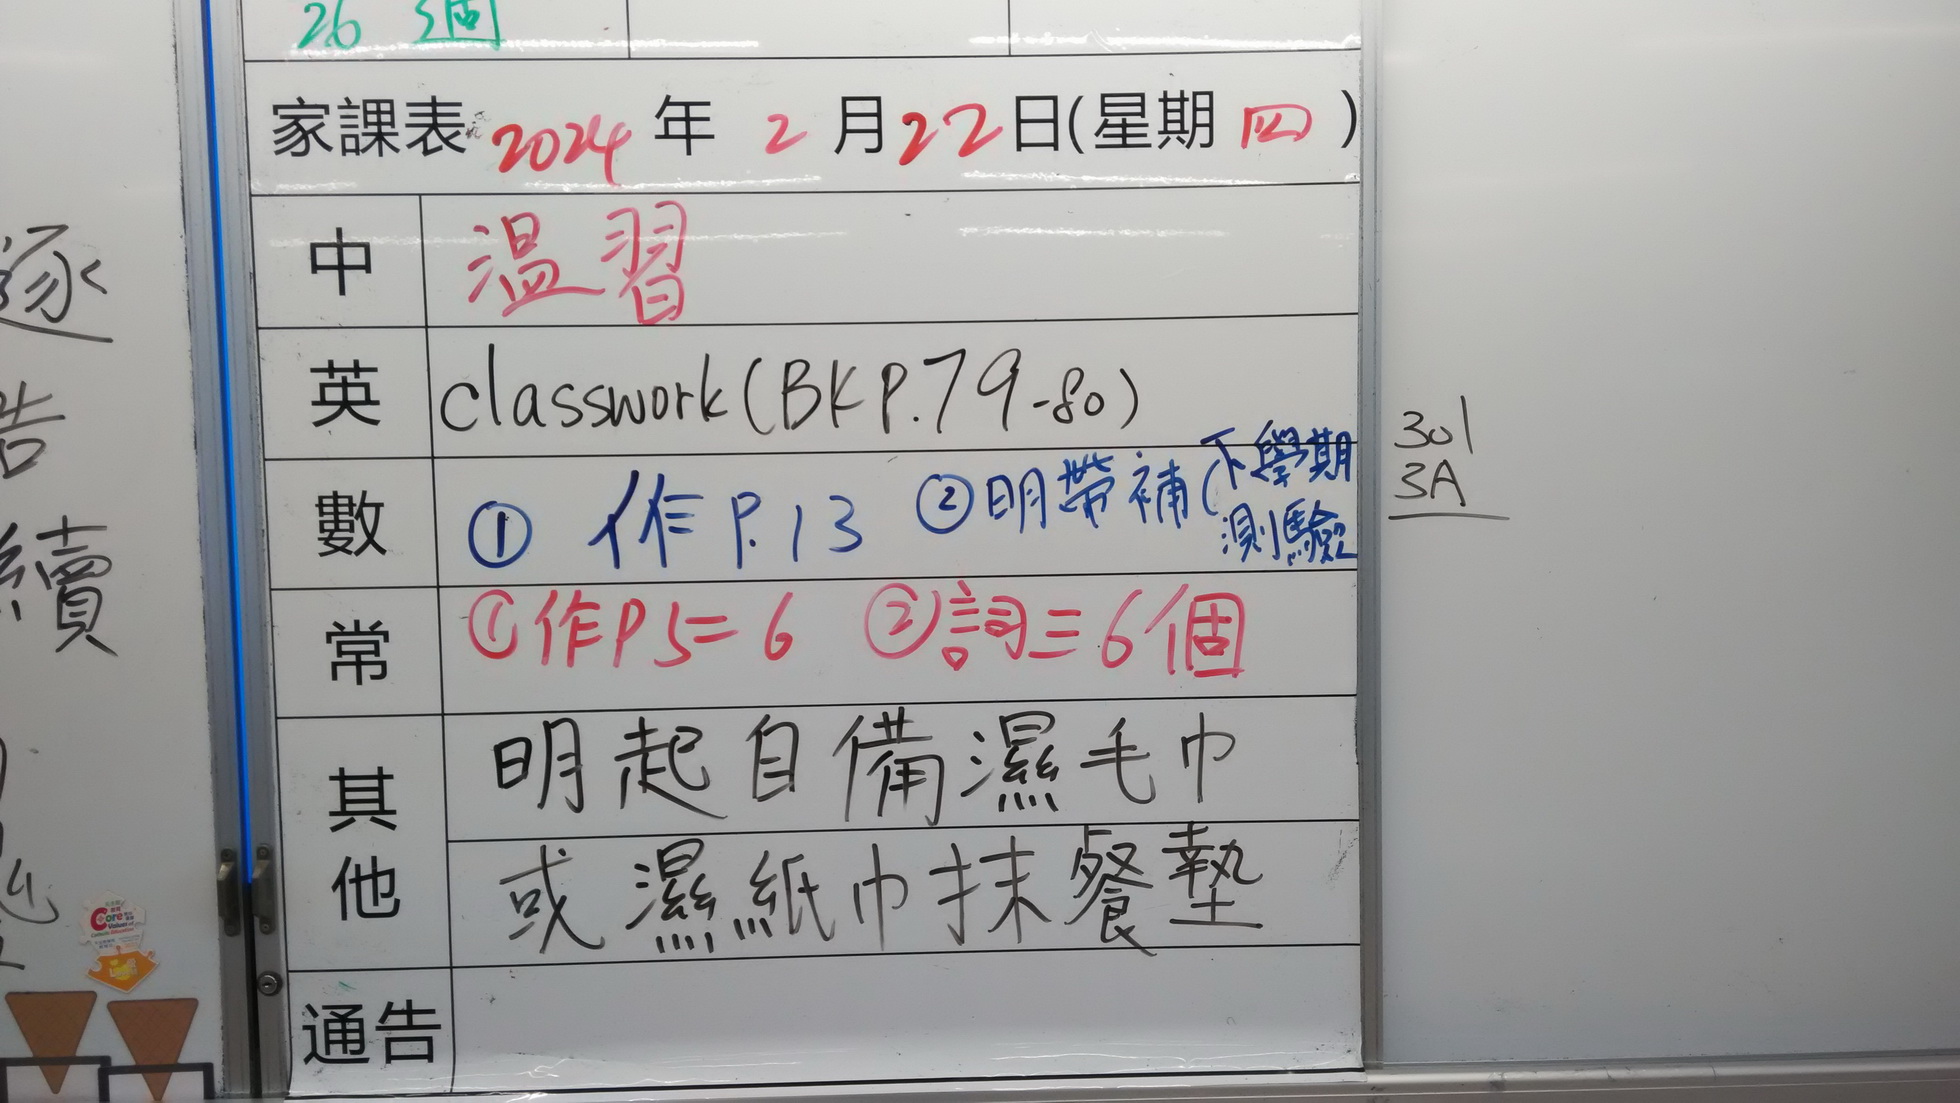 26 個
家課表 2024 年 2 月 22 日(星期 四 )
中 温習
英 classwork (BK P.79-80)
數 ① 作 P.13 ② 明帶補 (下學期
測驗
常 ① 作 P 5= 6 ② 詞三 6個
其他 明起自備濕毛巾
或濕紙巾抹餐墊
通告
逐
告
續
301
3A
Core